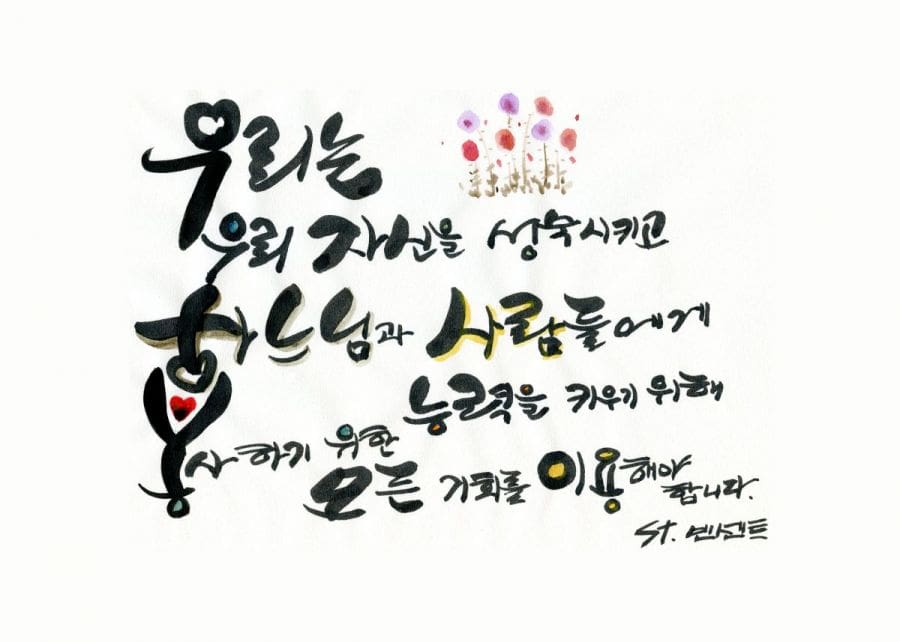 우리는
우리 자신을 성숙시키고
하느님과 사람들에게
봉사하기 위한
능력을 키우기 위해
모든 기회를 이용해야
합니다.
St. 빈센트